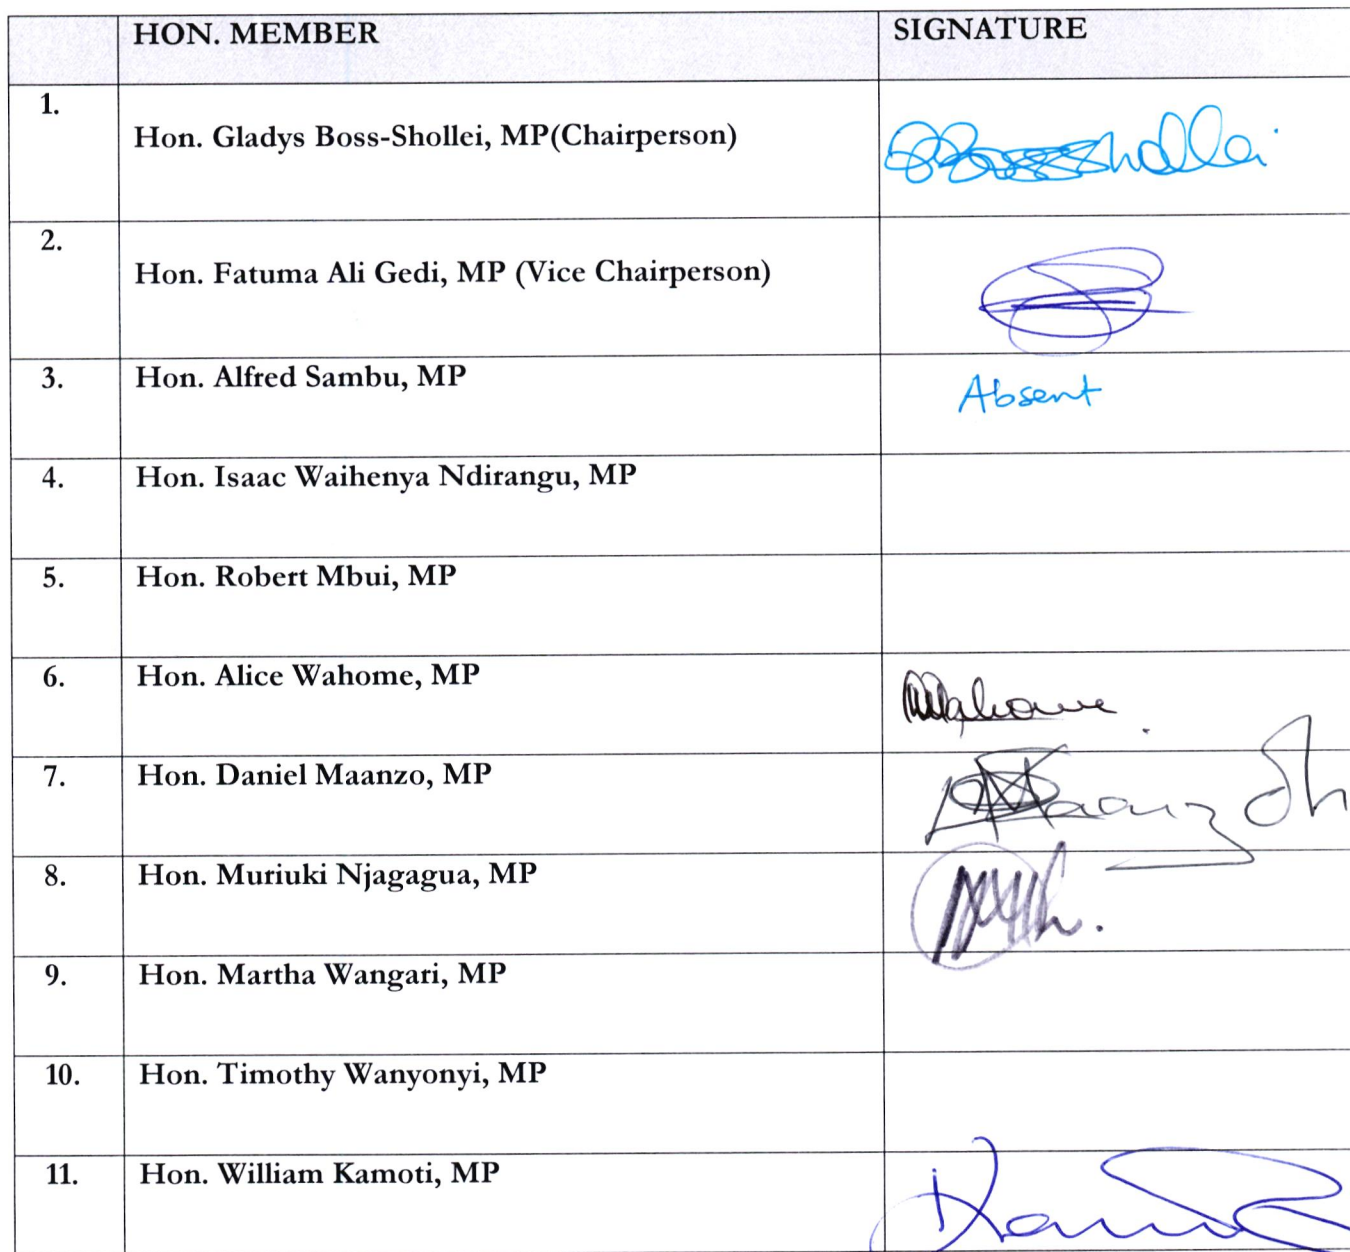 HON. MEMBER SIGNATURE
1. Hon. Gladys Boss-Shollei, MP(Chairperson) GBossShollei
2. Hon. Fatuma Ali Gedi, MP (Vice Chairperson)
3. Hon. Alfred Sambu, MP Absent
4. Hon. Isaac Waihenya Ndirangu, MP
5. Hon. Robert Mbui, MP
6. Hon. Alice Wahome, MP
7. Hon. Daniel Maanzo, MP
8. Hon. Muriuki Njagagua, MP
9. Hon. Martha Wangari, MP
10. Hon. Timothy Wanyonyi, MP
11. Hon. William Kamoti, MP